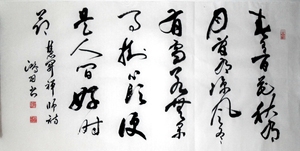 春有百花秋有
月夏有凉风冬
有雪若無闲
事挂心头便
是人间好时
节
慧開禅师诗
书